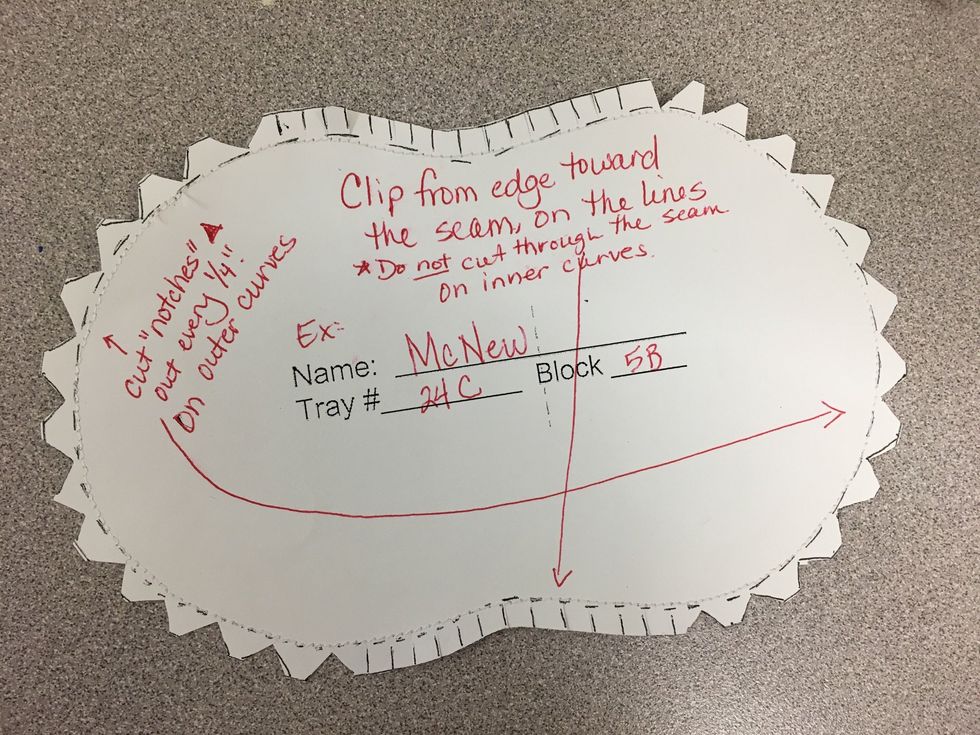 Clip from edge toward
the seam, on the lines
*Do not cut through the seam
on inner curves.
cut "notches"
out every 1/4".
on outer curves
Ex:
Name: McNew
Tray # 24C Block 5B